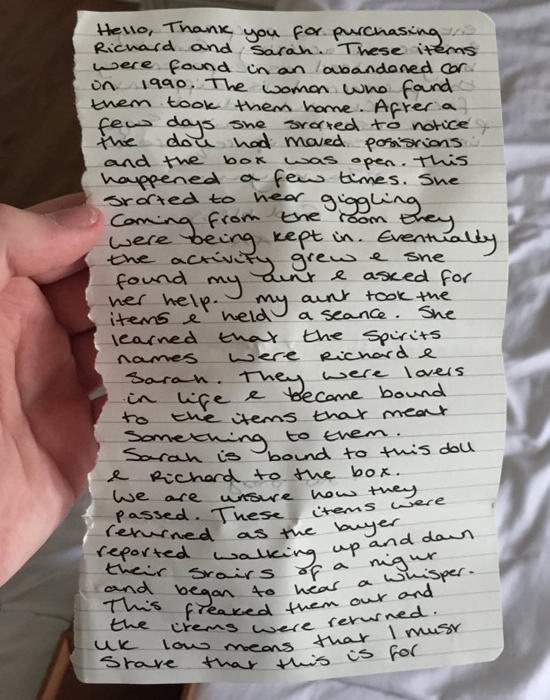 Hello, Thank you for purchasing
Richard and Sarah. These items
were found in an abandoned car
in 1990. The woman who found
them took them home. After a
few days she started to notice
the doll had moved posistions
and the box was open. This
happened a few times. She
started to hear giggling
coming from the room they
were being kept in. Eventually
the activity grew & she
found my aunt & asked for
her help. my aunt took the
items & held a seance. She
learned that the spirits
names were Richard &
Sarah. They were lovers
in life & became bound
to the items that meant
something to them.
Sarah is bound to this doll
& Richard to the box.
We are unsure how they
passed. These items were
returned as the buyer
reported walking up and down
their stairs of a night
and began to hear a whisper.
This freaked them out and
the items were returned.
UK law means that I must
state that this is for